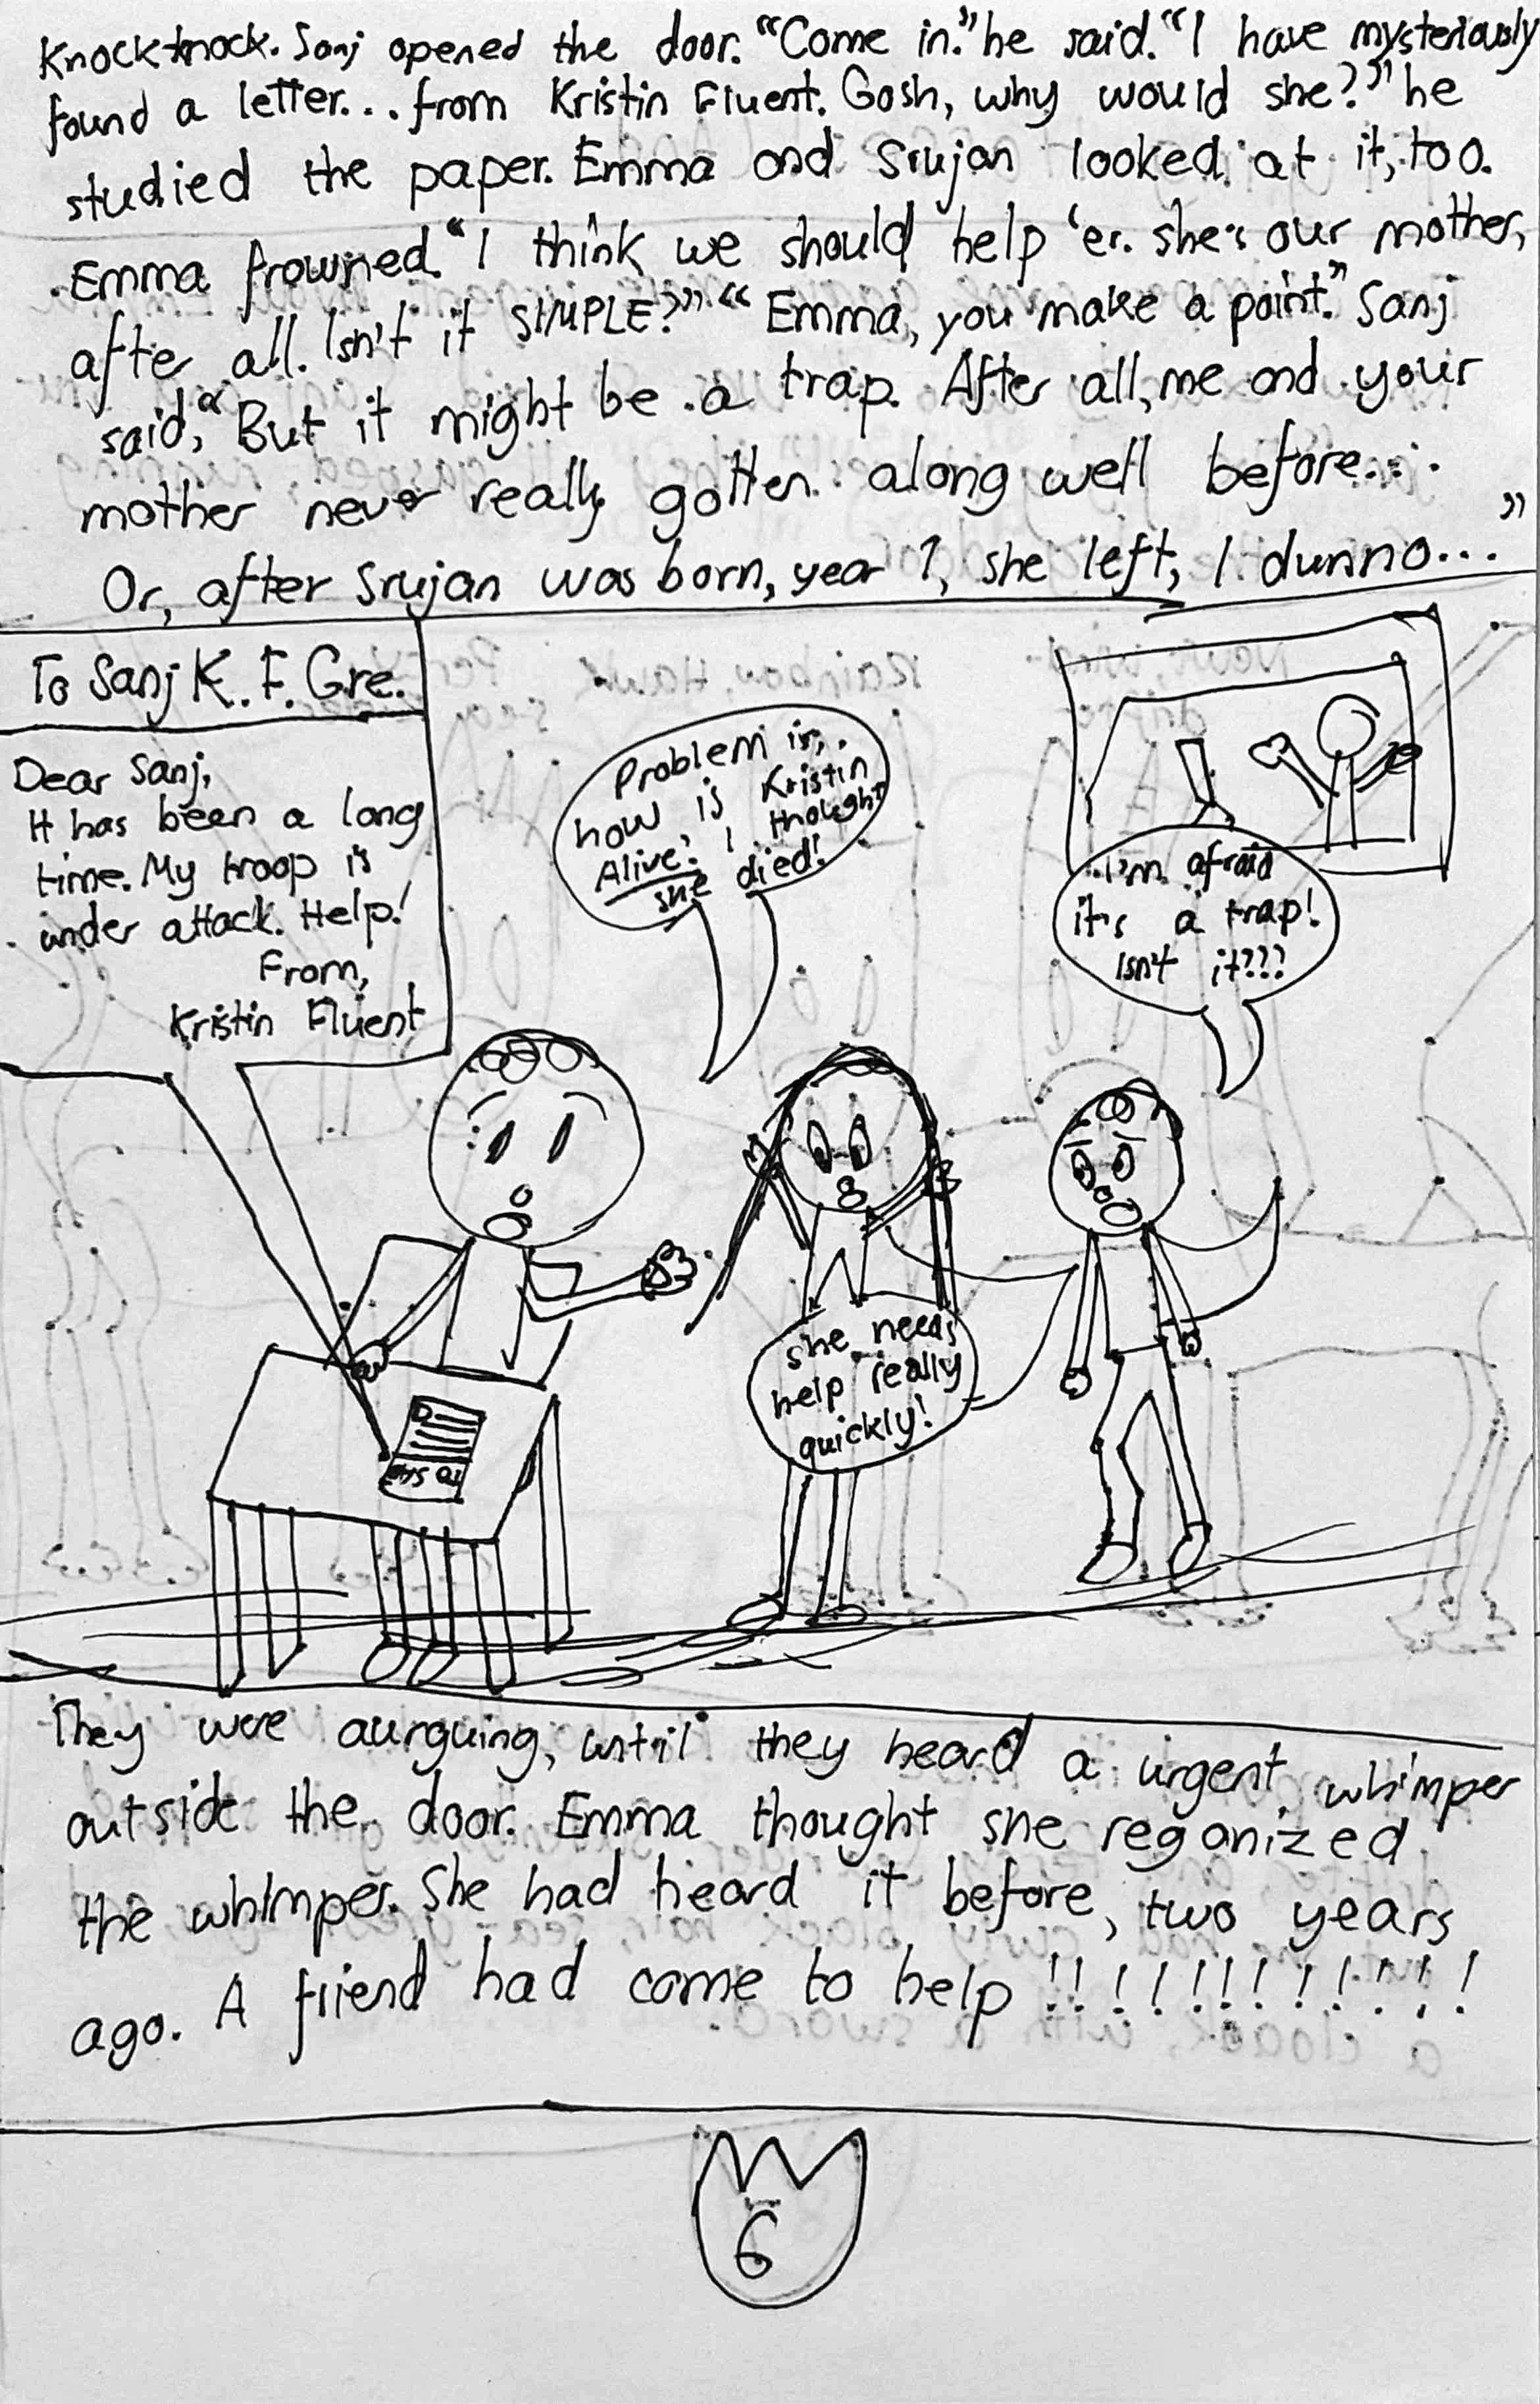 Knock-knock. Sanj opened the door. "Come in." he said. "I have mysteriously
found a letter... from Kristin Fluent. Gosh, why would she?" he
studied the paper. Emma and Srujan looked at it, too.
Emma frowned. "I think we should help 'er. she's our mother,
after all. Isn't it SIMPLE?" "Emma, you make a point." Sanj
said, "But it might be a trap. After all, me and your
mother never really gotten along well before...
Or, after Srujan was born, year 1, she left, I dunno..."
To Sanj K. F. Gre.
Dear Sanj,
It has been a long
time. My troop is
under attack. Help!
From,
Kristin Fluent
Problem is,
how is Kristin
Alive? I thought
she died!
I'm afraid
it's a trap!
Isn't it???
She needs
help really
quickly!
They were aurguing, until they heard a urgent whimper
outside the door. Emma thought she reganized
the whimper. She had heard it before, two years
ago. A friend had come to help !!!!!!!!!!!!!
6